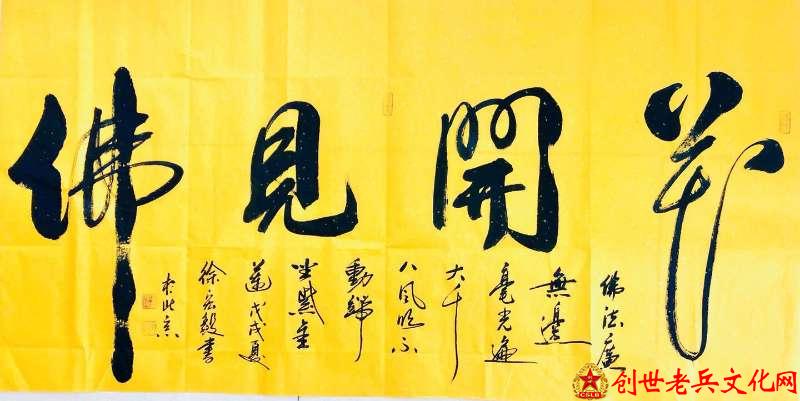 花開見佛
佛法廣
無邊
毫光遍
大千
八風吹不
動端
坐紫金
蓮戊戌夏
徐宏毅書
於北京
创世老兵文化网
CSLB